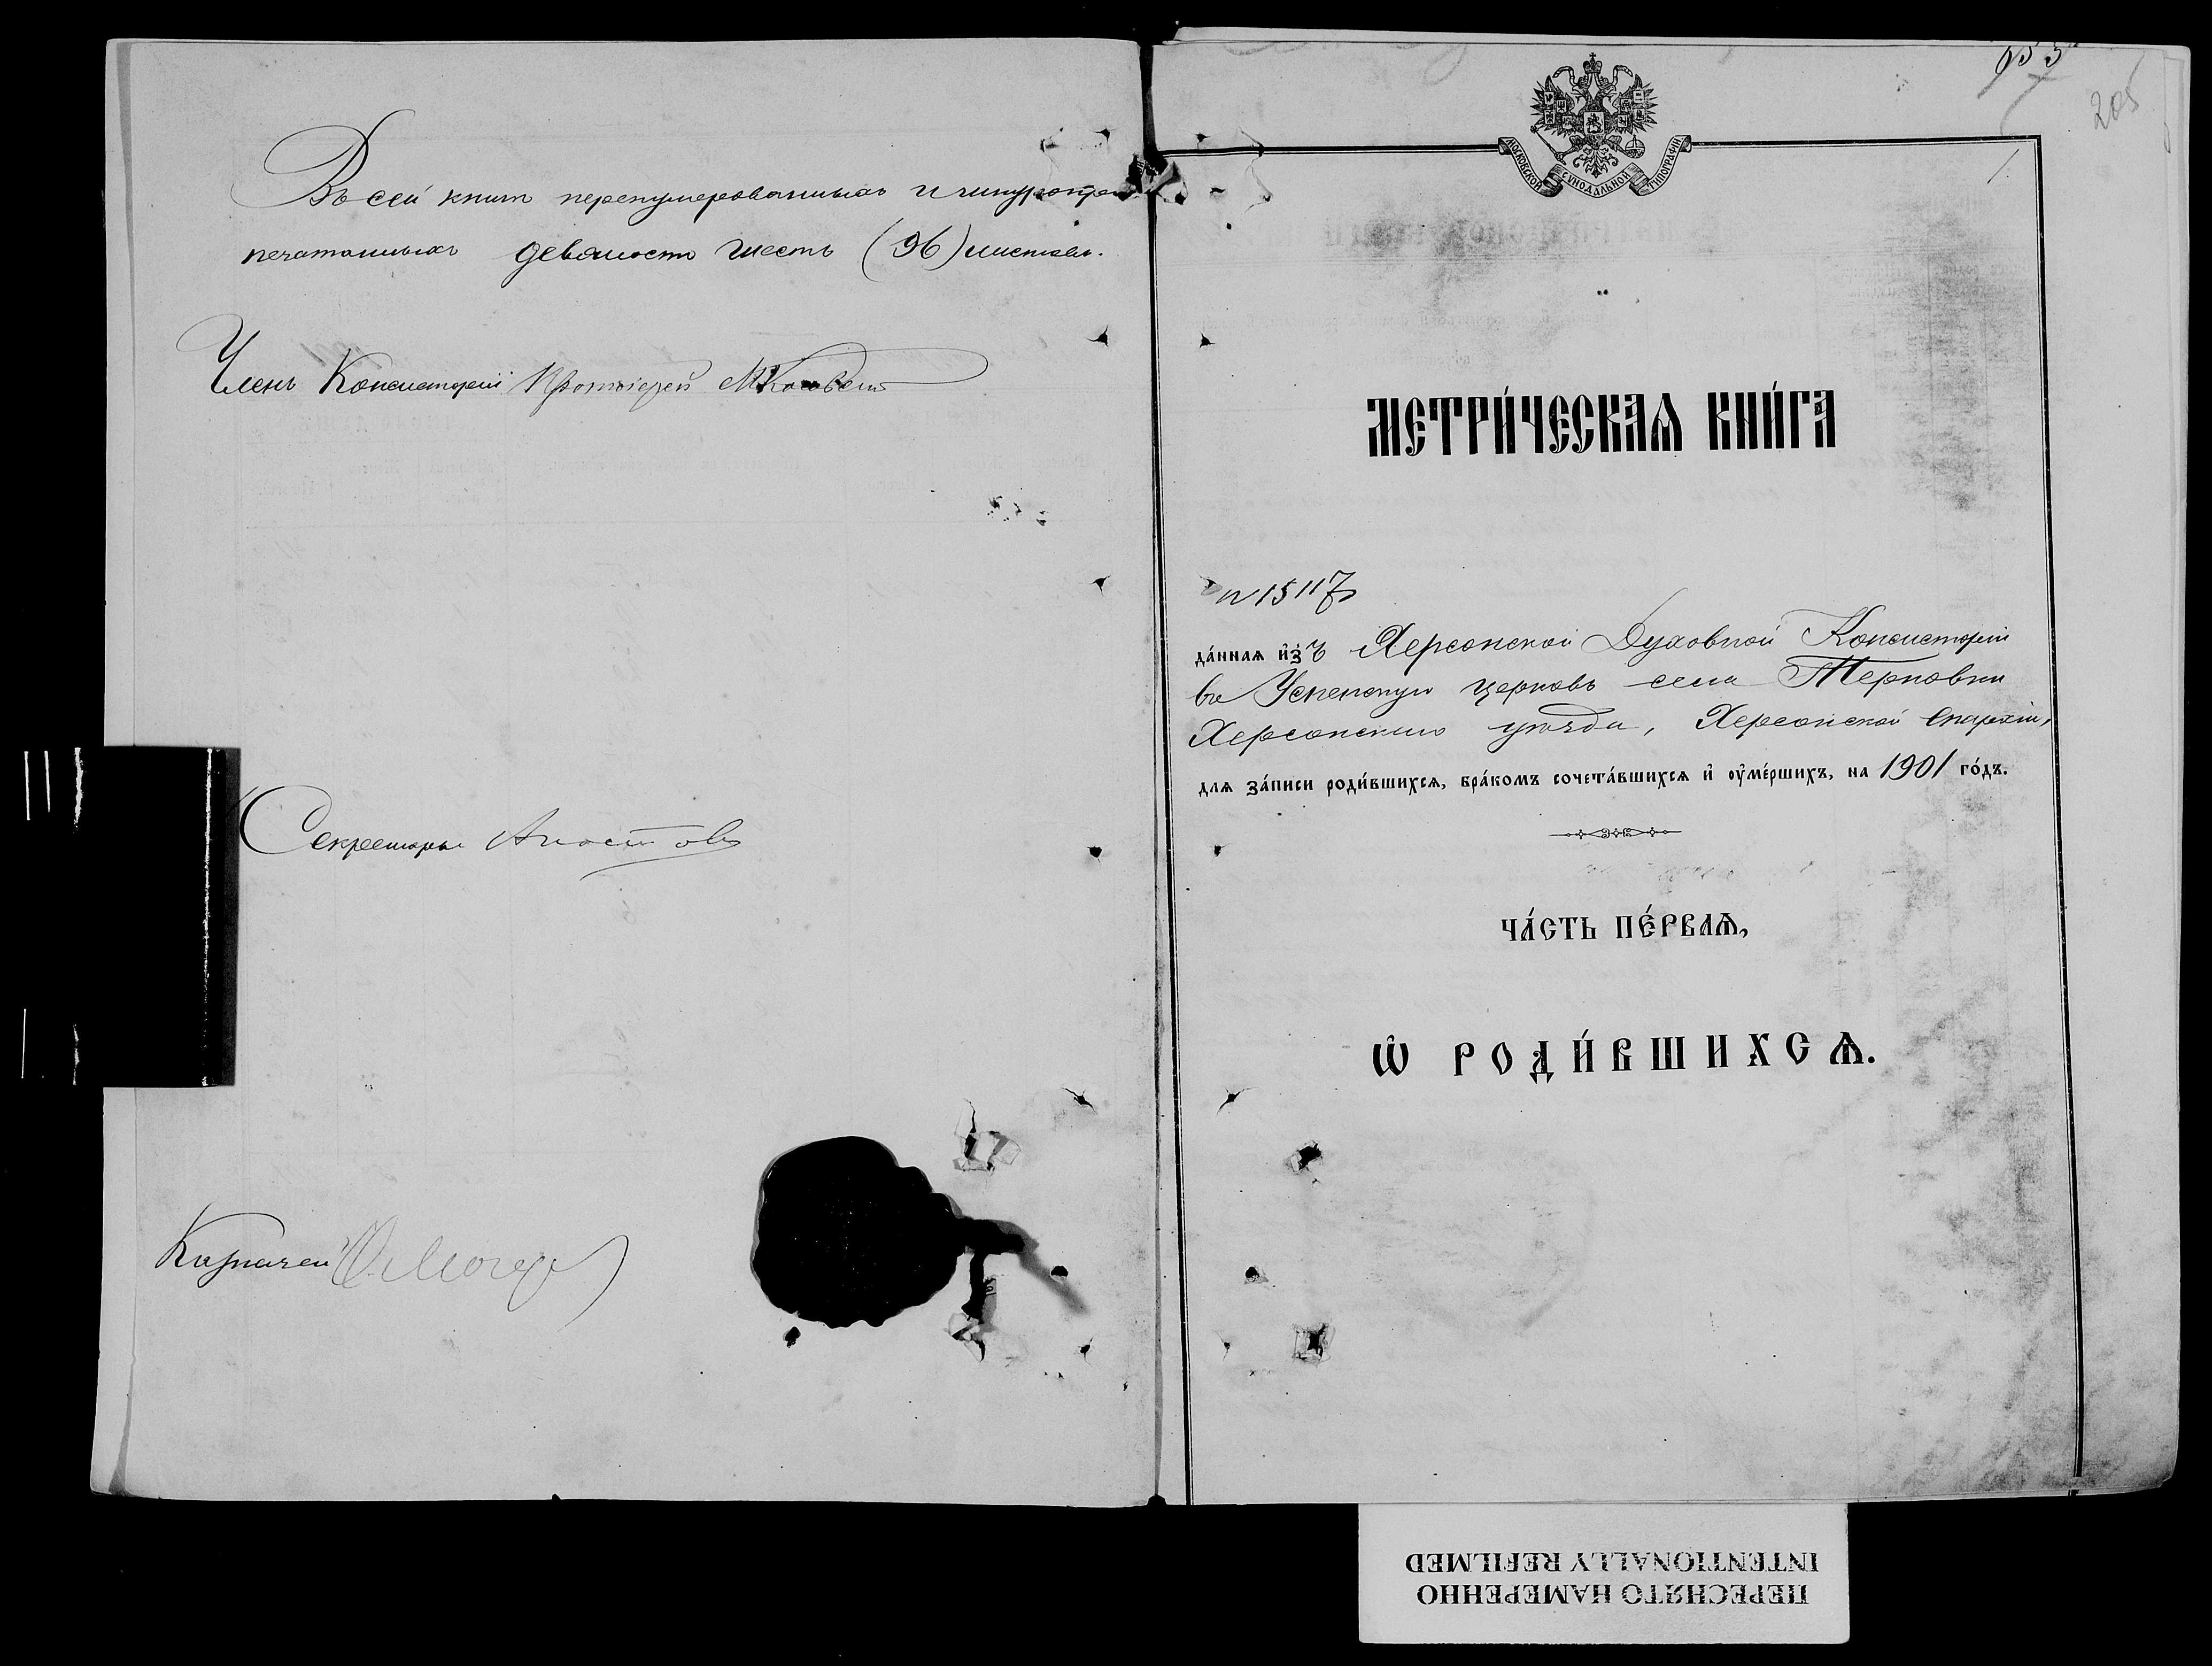 Въ сей книгѣ перенумерованныхъ и шнуропри
печатанныхъ девяносто шесть (96) листовъ.
Членъ Консисторіи Протоіерей
Секретарь
Казначей
205
1
МОСКОВСКОЙ СѴНОДАЛЬНОЙ ТИПОГРАФІИ
МЕТРИ́ЧЕСКАѦ КНИ́ГА
№ 15117
да́ннаѧ и҆зъ Херсонской Духовной Консисторіи
въ Успенскую церковь села Терновки
Херсонскаго уѣзда, Херсонской Епархіи,
длѧ за́писи роди́вшихсѧ, бра́комъ сочета́вшихсѧ и҆ оу҆ме́ршихъ, на 1901 го́дъ.
ЧА́СТЬ ПЕ́РВАѦ,
Ѽ РОДИ́ВШИХСѦ.
ПЕРЕСНЯТО НАМЕРЕННО
INTENTIONALLY REFILMED